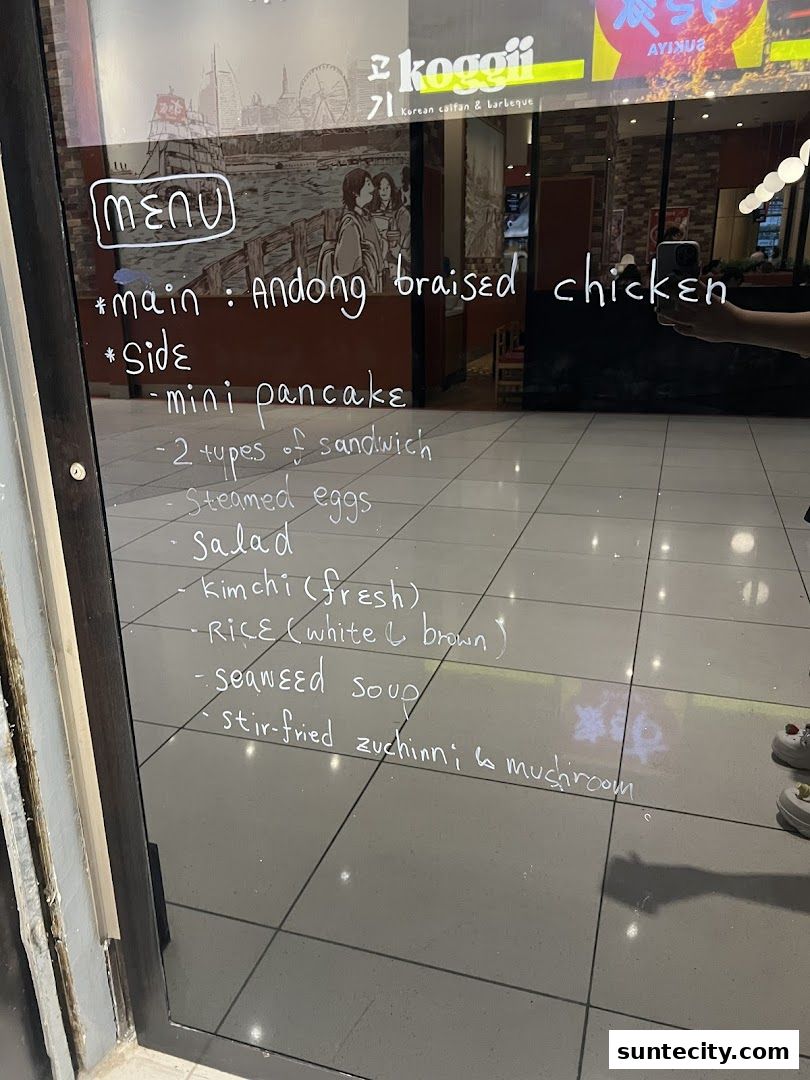 고기
koggii
Korean caifan & barbeque
SUKIYA
MENU
*main : Andong braised chicken
*Side
- mini pancake
- 2 types of sandwich
- Steamed eggs
- Salad
- Kimchi (fresh)
- RICE (white & brown)
- seaweed soup
- stir-fried zuchinni & mushroom
suntecity.com